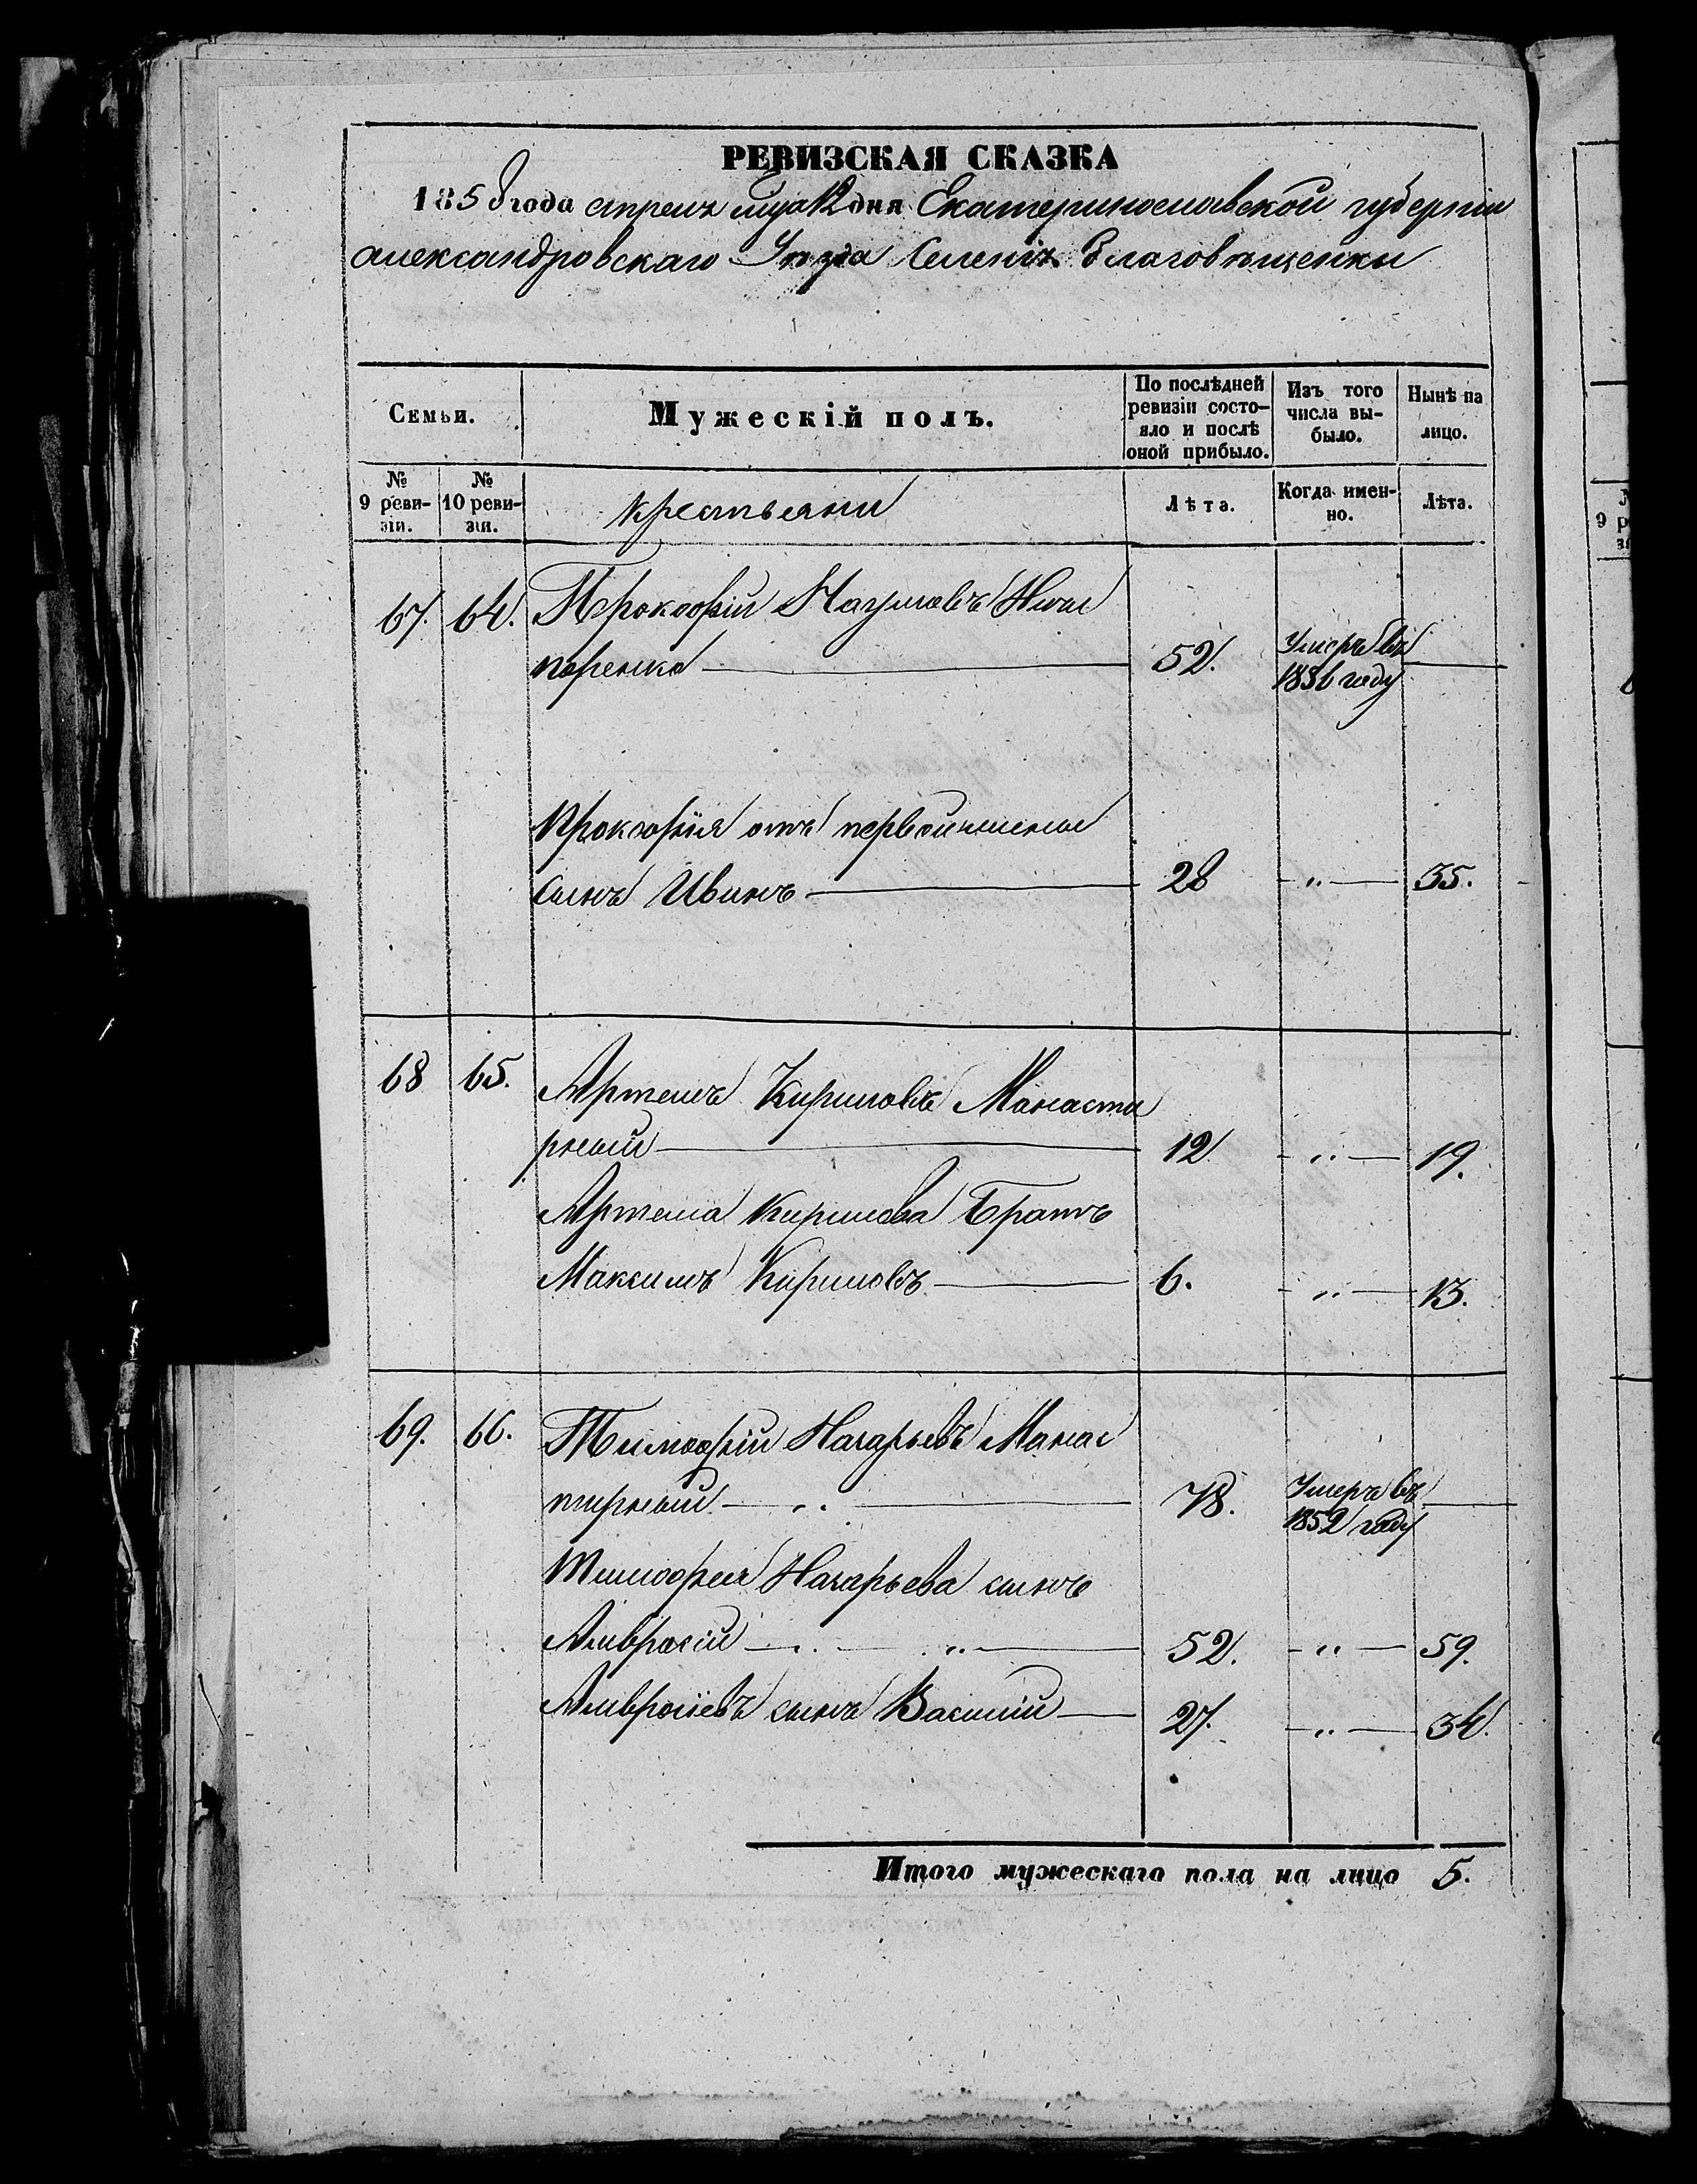 РЕВИЗСКАЯ СКАЗКА
1858 года апреля мца 12 дня Екатеринославской губернии
Александровскаго Уезда Селенія Благовѣщенки
Семьи.
Мужескій полъ.
По послѣдней ревизіи состояло и послѣ оной прибыло.
Изъ того числа выбыло.
Нынѣ на лицо.
№ 9 ревизіи.
№ 10 ревизіи.
крестьяни
Лѣта.
Когда именно.
Лѣта.
67. 64. Прокофій Наумовъ Ничи
поренко 52. Умеръ въ 1856 году
Прокофія отъ первой жены
сынъ Иванъ 28 " 35.
68 65. Артемъ Кириловъ Манасты
рный 12 " 19.
Артема Кирилова Братъ
Максимъ Кириловъ 6. " 13.
69. 66. Тимофѣй Назарьевъ Манас
тирный " 78. Умеръ въ 1852 году
Тимофея Назарьева сынъ
Амвросій " " 52. " 59.
Амвросіевъ сынъ Василій 27. " 34.
Итого мужескаго пола на лицо 5.